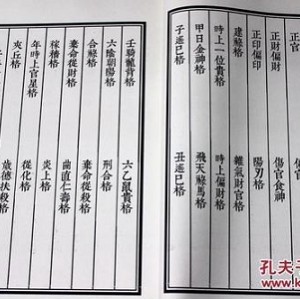 正官
正財偏財 傷官食神
正印偏印 陽刃格
建祿格 雜氣財官格
時上一位貴格 時上偏財格
甲日金神格 飛天祿馬格
子遙巳格 丑遙巳格
壬騎龍背格 六乙鼠貴格
六陰朝陽格 刑合格
合祿格 棄命從殺格
棄命從財格 曲直仁壽格
稼穡格 炎上格
年時上官星格 從化格
夾丘格 歲德扶殺格
孔夫子